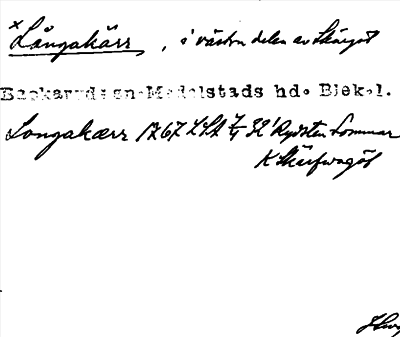 × Långakärr, i västra delen av Skärget
Backaryds sn. Medelstads hd. Blek.l.
Longakærr 1767 LSA 32' Rydsten Sommar
K Skärfwagöl